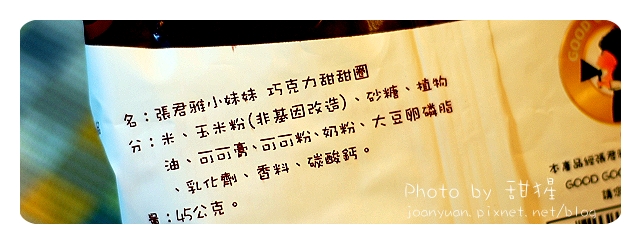 名：張君雅小妹妹 巧克力甜甜圈
分：米、玉米粉(非基因改造)、砂糖、植物
油、可可膏、可可粉、奶粉、大豆卵磷脂
、乳化劑、香料、碳酸鈣。
量：45公克。
本產品經張
GOOD GOO
請
GOOD
Photo by 甜猩
joanyuan.pixnet.net/blog